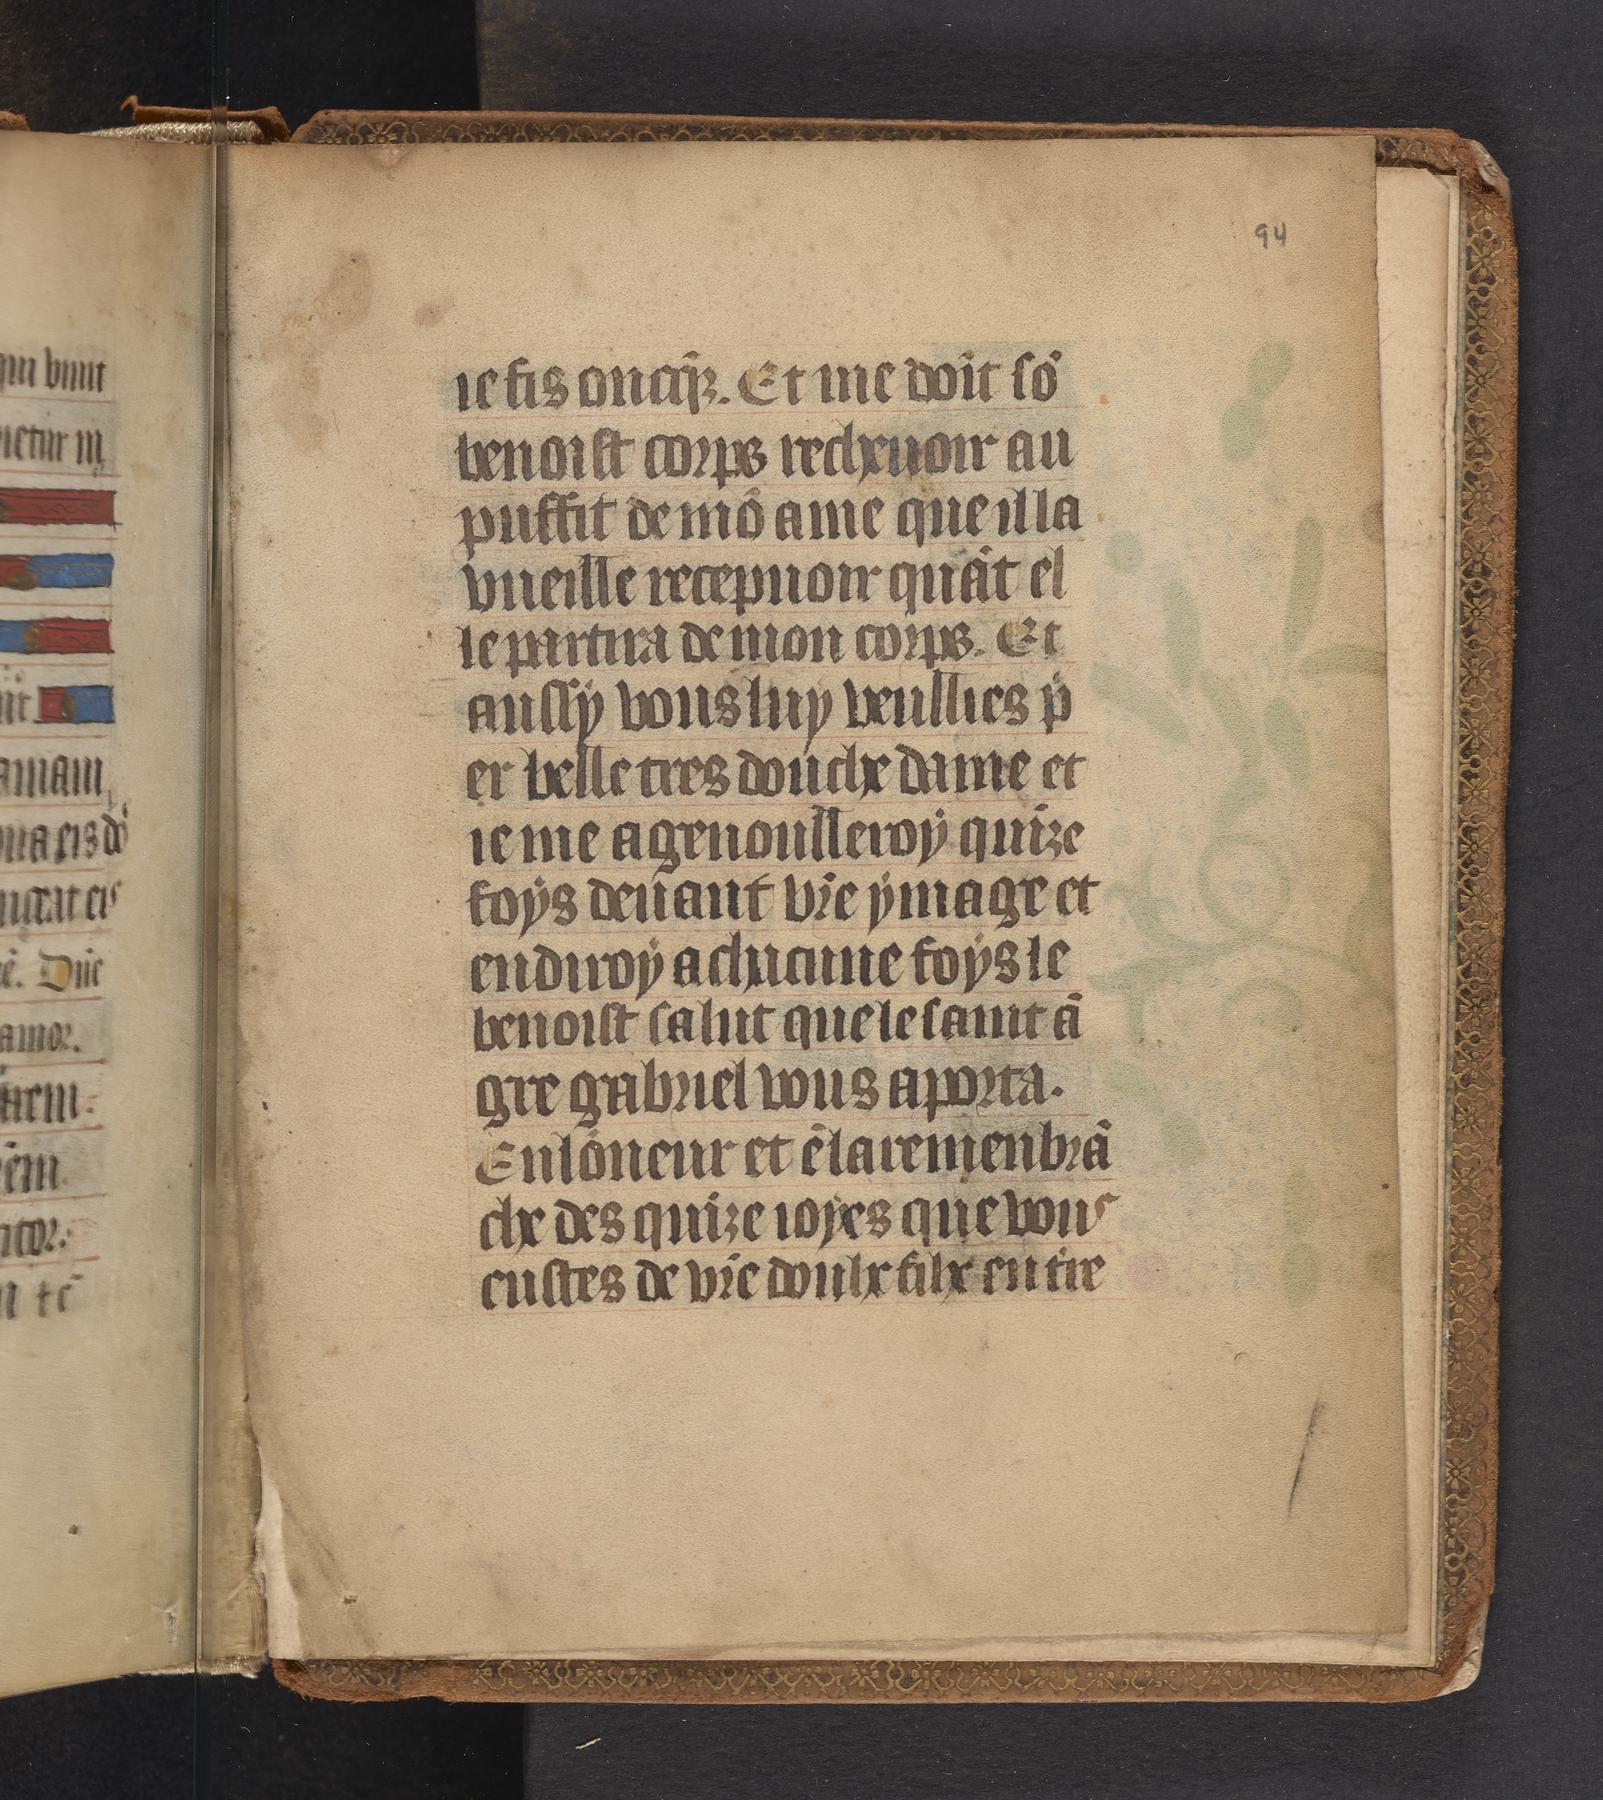 94
ie fis oncq̄z. Et me doīt sō
benoist corps recheuoir au
puffit de mō ame que illa
vueille recepuoir quāt el
le partira de mon corps. Et
aussÿ vous luy veullies p̄
er belle tres douche dame et
ie me agenoulleroÿ quīze
foÿs deuant vr̄e ÿmage et
en diroÿ a chacune foÿs le
benoist salut que le saint ā
gre gabriel vous aporta.
En lōneur et ē la remenbrā
che des quīze ioyes que vous
eustes de vr̄e doulx filx en t̄re
qui
ietur in
amam
amor.
Dn̄e